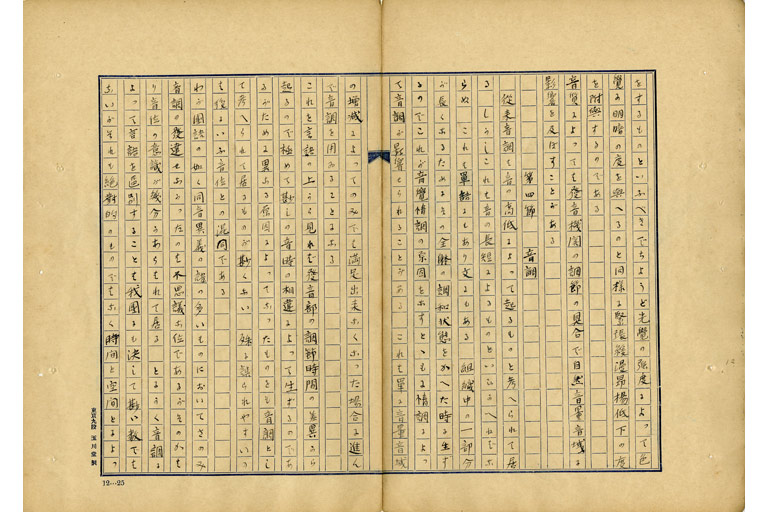 をするものといふべきでちようど光覺の強度によつて色
覺の明暗の度を與へるのと同様に緊張弛漫昂揚低下の度
を附與するのである
音質によつても發音機関の調節の具合で自然音量音域に
影響を及ぼすことがある
第四節 音調
從来音調は音の高低によつて起るものと考へられて居
る しかしこれは音の長短によるものといひかへねばな
らぬ これは單語にもあり文にもある 組織中の一部分
が長くなるためにその全体の調和状態をかへた時に生ず
るのでこれが音覺情調の原因をなすとゝもに情調によつ
て音調が影響せられることがある これは單に音量音域
の増減によつてのみでは満足出来なくなつた場合に進ん
で音調を用ゐることになる
これを言語の上から見れば發音部の調節時間の差異から
起るので極めて尠しの音時の相違によつて生ずるのであ
るがために異なる原因によつてなつたものをも音調とし
て考へられて居るものが尠くない 殊に誤られやすいつ
も俗にいふ音位との混同である
わが國語の如く同音異義の語の多いものにおいてさのみ
音調の發達せなかつたのは不思議な位であるがそのかは
り音位の意識が幾分かあらはれて居る とにかく音調に
よつて言語を區別することは我國にも決して尠い数では
ないがそれも絶對的のものではなく時間と空間とによつ
東京九段 玉川堂製
12…25